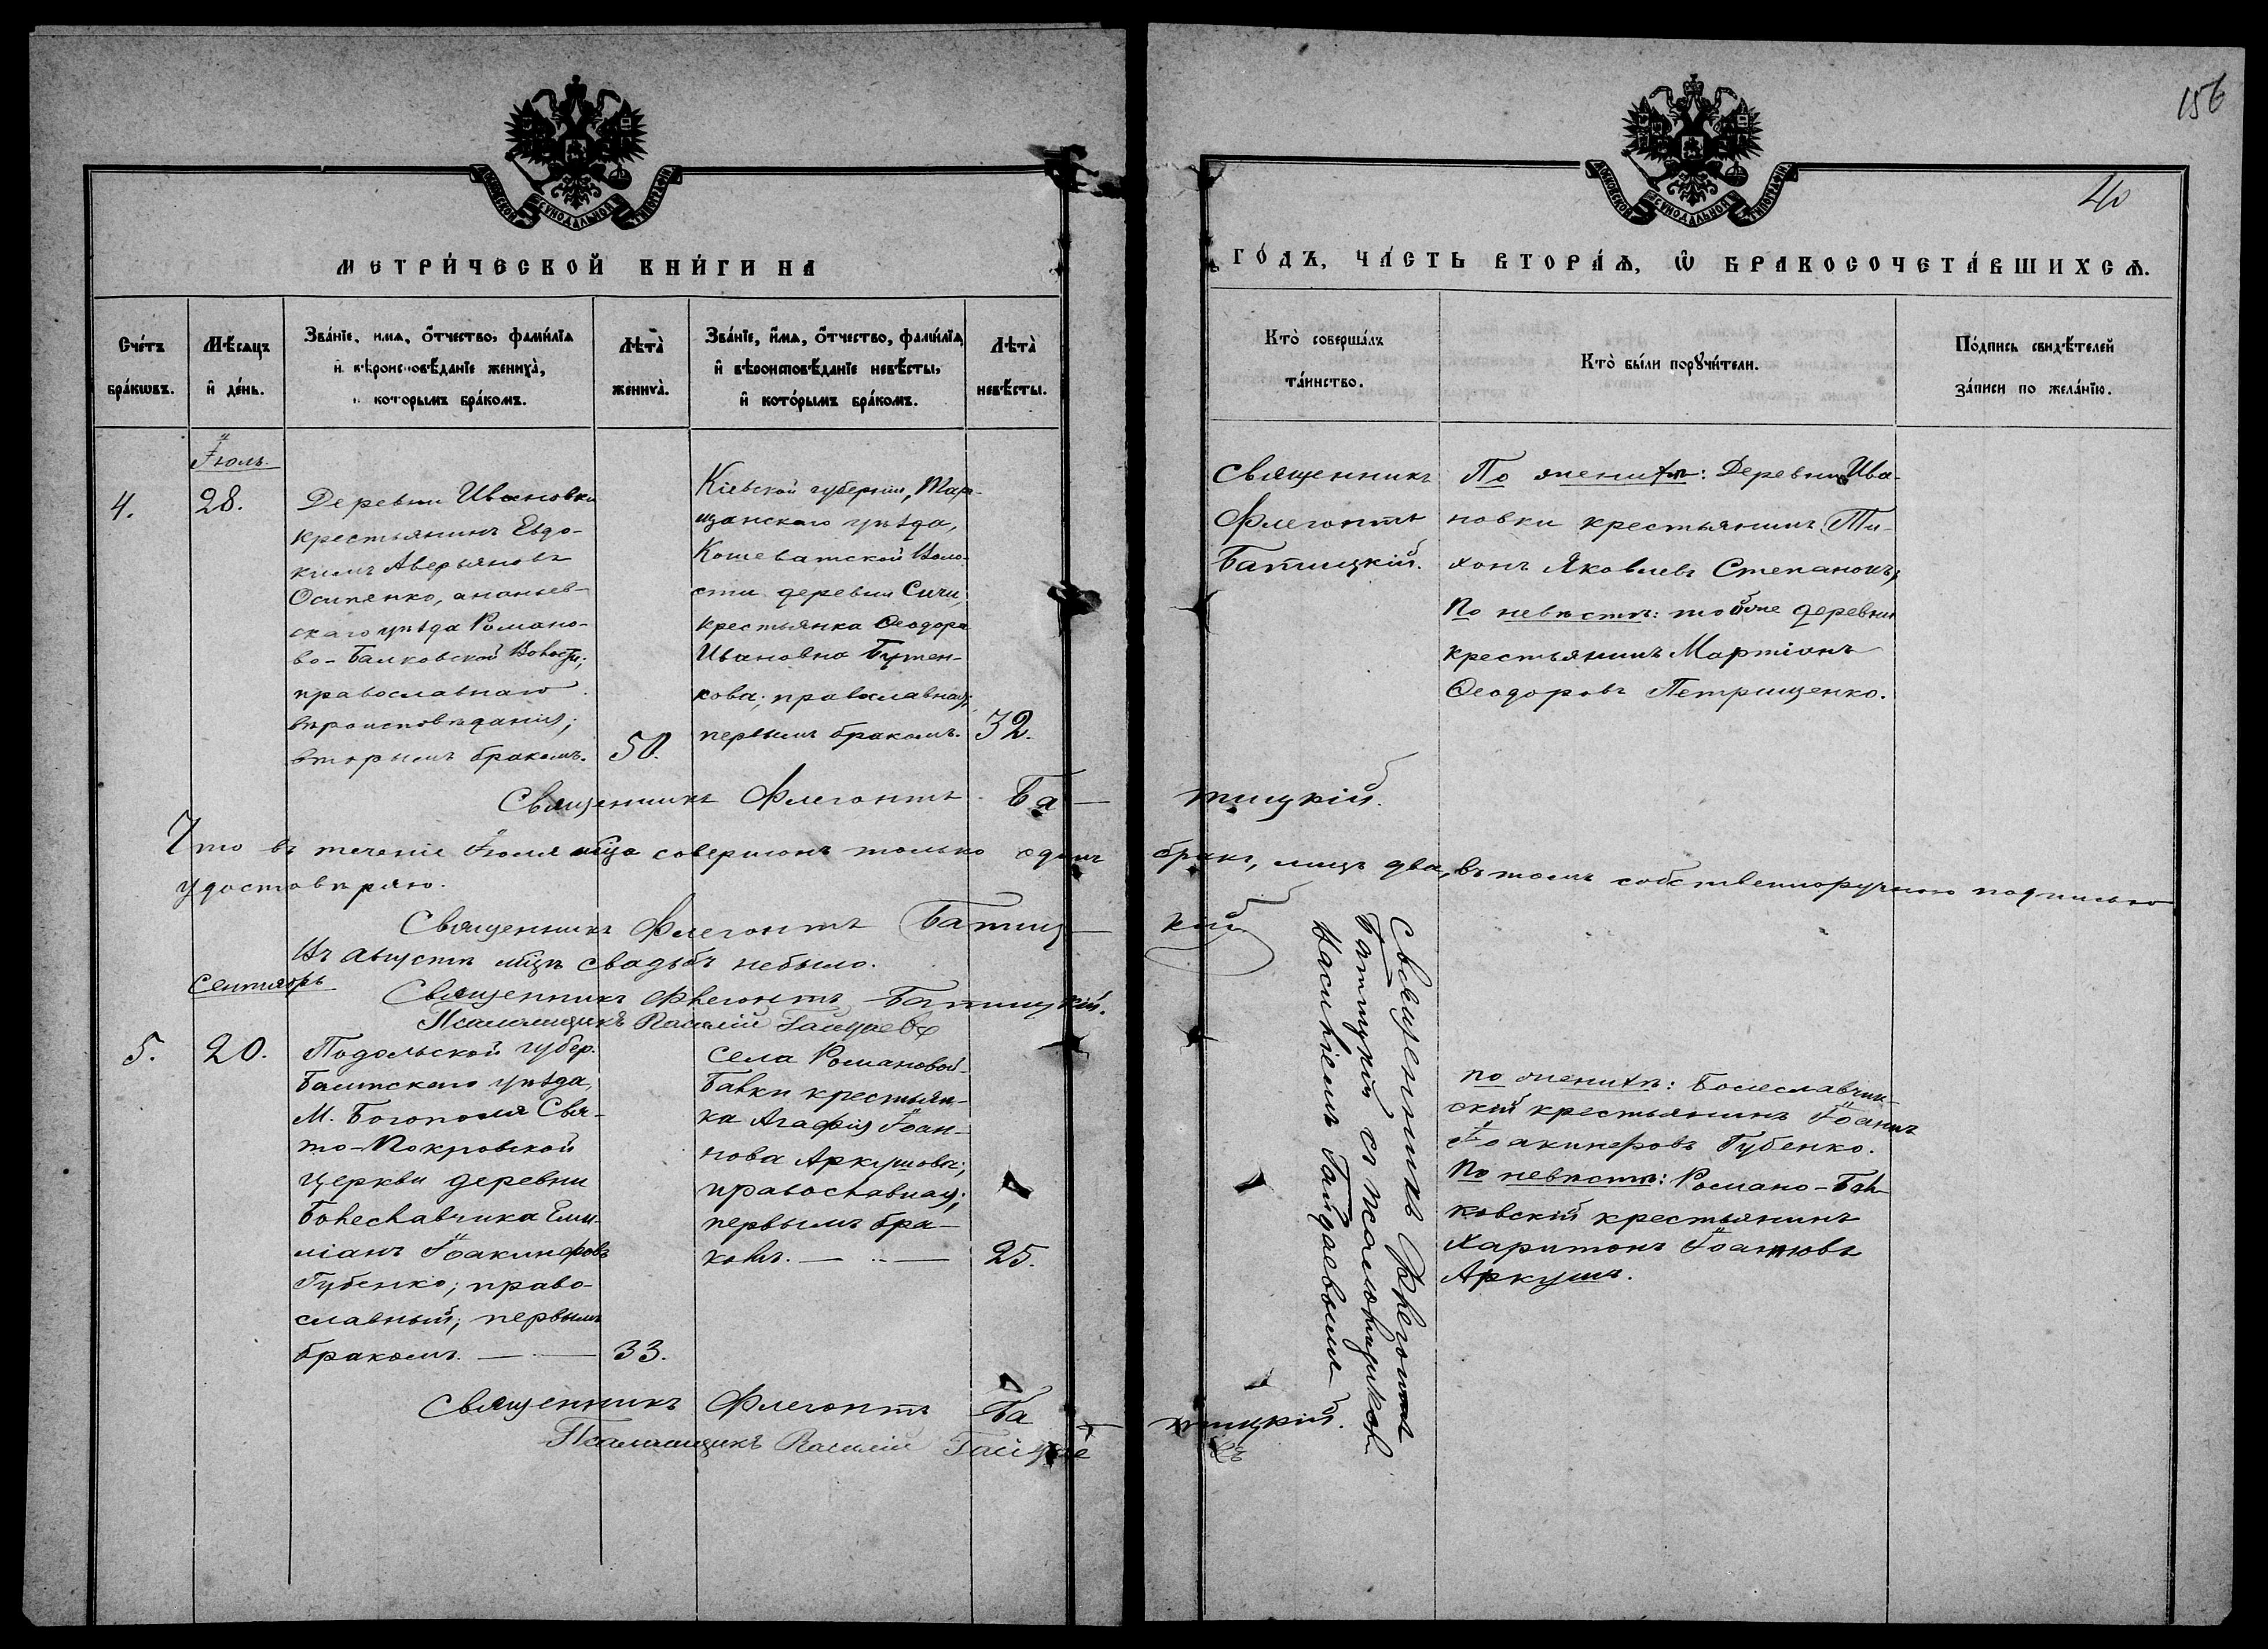 156
40
МОСКОВСКОЙ СѴНОДАЛЬНОЙ ТИПОГРАФІИ
МОСКОВСКОЙ СѴНОДАЛЬНОЙ ТИПОГРАФІИ
МЕТРИ́ЧЕСКОЙ КНИ́ГИ НА
ГО́ДЪ, ЧА́СТЬ ВТОРА́Ѧ, Ѡ҆ БРАКОСОЧЕТА́ВШИХСѦ.
Сче́тъ
бра́кѡвъ.
Мѣ́сѧцъ
и҆ де́нь.
Зва́нїе, и҆мѧ, ѻ҆́тчество, фами́лїѧ
и҆ вѣроисповѣ́данїе жениха̀,
и҆ кото́рымъ бра́комъ.
Лѣта̀
жениха̀.
Зва́нїе, и҆́мѧ, ѻ҆́тчество, фами́лїѧ,
и҆ вѣроисповѣ́данїе невѣ́сты,
и҆ кото́рымъ бра́комъ.
Лѣта̀
невѣ́сты.
Кто̀ соверша́лъ
та́инство.
Кто̀ бы́ли порꙋчи́тели.
По́дпись свидѣ́телей
за́писи по жела́нїю.
Іюль.
4.
28.
Деревни Ивановки
крестьянинъ Евдо-
кимъ Аверьяновъ
Осипенко, ананьев-
скаго уѣзда Романо-
во-Балковской Волости;
православнаго
вѣроисповѣданія;
вторымъ бракомъ.
50.
Кіевской губерніи, Тара-
щанскаго уѣзда,
Кошеватской Воло-
сти деревни Сичи,
крестьянка Ѳеодора
Ивановна Бутен-
кова; православная;
первымъ бракомъ.
32.
Священникъ
Флегонтъ
Батицкій.
По женихѣ: Деревни Ива-
новки крестьянинъ Ти-
хонъ Яковлевъ Степанокъ;
По невѣстѣ: той же деревни
крестьянинъ Мартіонъ
Ѳеодоровъ Петрищенко.
Священникъ Флегонтъ Ба-тицкій.
Что въ теченіе Іюля мѣца совершонъ только одинъ бракъ, лицъ два, въ томъ собственноручною подписью
удостовѣряю.
Священникъ Флегонтъ Батиц-кій
Въ Августѣ мѣцѣ свадьбъ небыло.
Священникъ Флегонтъ Батицкій.
Псаломщикъ Василій Гайдаевъ
Сентябрь
5.
20.
Подольской губер.
Балтскаго уѣзда,
М. Богополя Свя-
то-Покровской
церкви деревни
Болеславчика Еми-
ліанъ Іоакинфовъ
Губенко; право-
славный; первымъ
бракомъ. —
33.
Села Романовой-
Балки крестьян-
ка Агафія Іоан-
нова Аркушова;
православная;
первымъ бра-
комъ. —
25.
Священникъ Флегонтъ
Батицкій съ псаломщикомъ
Василіемъ Гайдаевымъ
по женихѣ: Болеславчик-
скій крестьянинъ Іоаннъ
Іоакинфовъ Губенко.
По невѣстѣ: Романо-Бал-
ковскій крестьянинъ
Харитонъ Іоанновъ
Аркушъ.
Священникъ Флегонтъ Ба-тицкій.
Псаломщикъ Василій Гайдае-въ